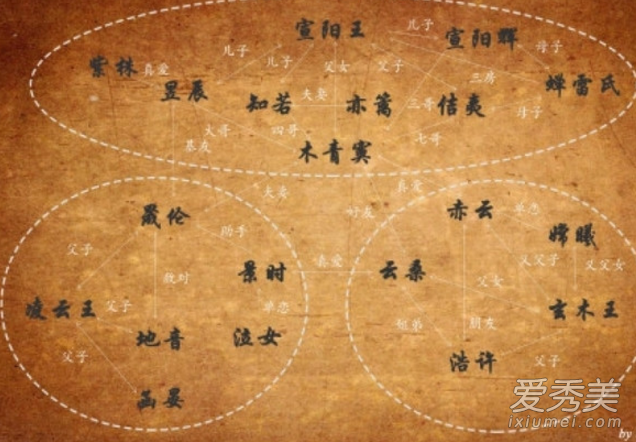 宣阳王
儿子
宣阳辉
母子
儿子
儿子
紫株
真爱
父女
父子
三房
蝉雷氏
昱辰
夫妻
知若
亦篱
三哥
信夷
母子
大哥
四哥
七哥
基友
木青寞
夫妻
真爱
晟伦
好友
赤云
单恋
嫦曦
父子
助手
景时
真爱
云桑
父女
义父子
义父女
敌对
凌云王
父子
单恋
玄木王
地音
泣女
朋友
父子
浩许
父子
函晏
爱秀美
ixiumei.com
by